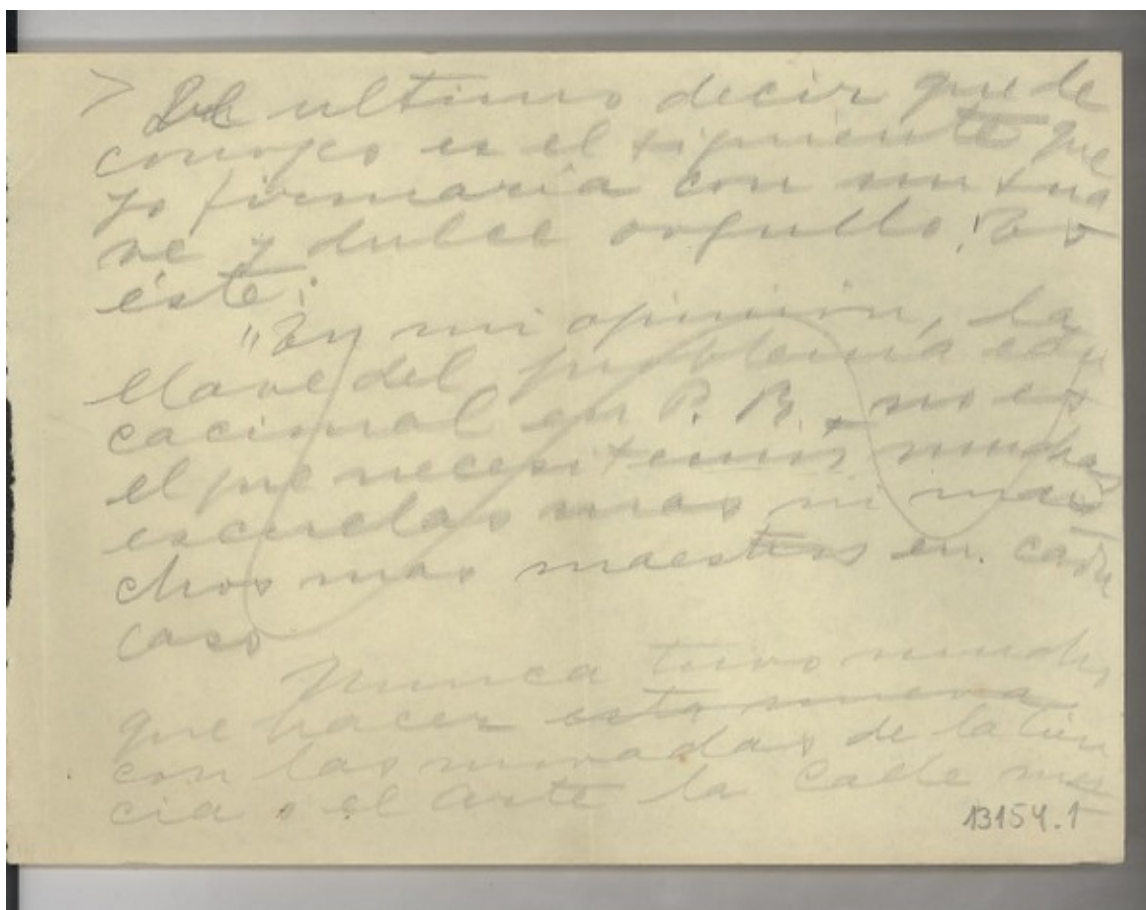 > El ultimo decir que le
conozco es el siguiente que
yo firmaria con un sua
ve y dulce orgullo. Es
éste:
"En mi opinión, la
llave del problema edu
cacional en P. R. no es
el que necesitemos muchas
escuelas mas ni mu
chos mas maestros en. cada
caso
Nunca tuvo mucho
que hacer esto
con las moradas de la cien
cia o el arte la calle
13154.1